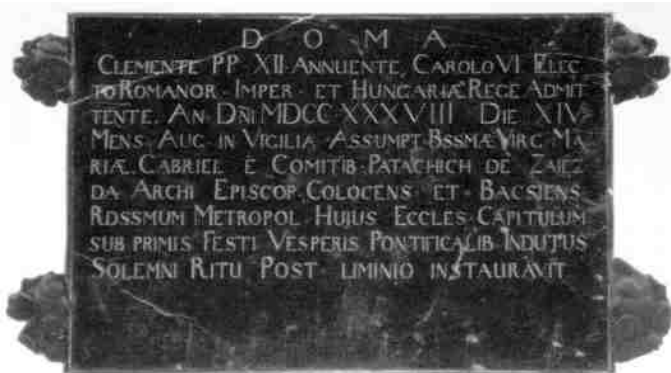 D O M A
CLEMENTE PP XII ANNUENTE, CAROLO VI ELEC
TO ROMANOR · IMPER · ET HUNGARIÆ REGE ADMIT
TENTE. AN DÑI MDCC XXXVIII DIE XIV
MENS AUG IN VIGILIA ASSUMPT BSSMÆ VIRG MA
RIÆ. GABRIEL E COMITIB PATACHICH DE ZAIEZ
DA ARCHI EPISCOP. COLOCENS · ET · BACSIENS
RDSSMUM METROPOL HUIUS ECCLES CAPITULUM
SUB PRIMIS FESTI VESPERIS PONTIFICALIB INDUTUS
SOLEMNI RITU POST LIMINIO INSTAURAVIT